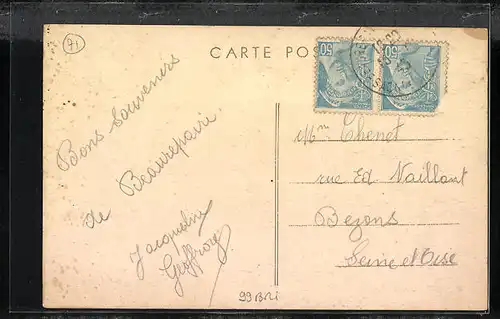 71
CARTE POS
50
50
Bons Souvenirs
de Beaurepaire
Jacqueline
Geoffroy
Mme Thenet
rue Ed Vaillant
Bezons
Seine et Oise
99BRI